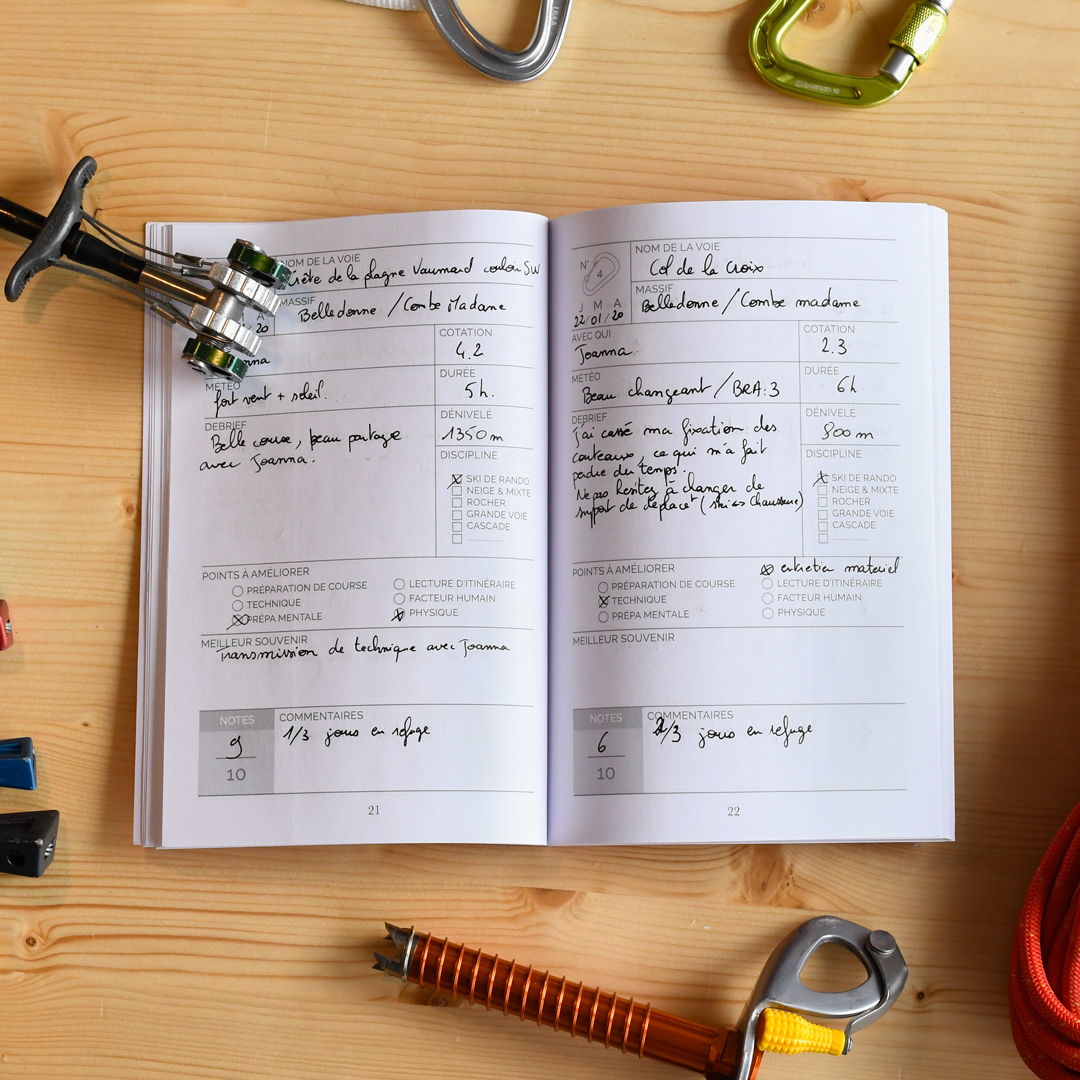 NOM DE LA VOIE
Crête de la plagne Vaumard couloir SW
MASSIF
Belledonne / Combe Madame
A
20
COTATION
4.2
MÉTÉO
fort vent + soleil.
DURÉE
5h.
DEBRIEF
Belle course, beau partage
avec Joanna.
DÉNIVELÉ
1350m
DISCIPLINE
X SKI DE RANDO
NEIGE & MIXTE
ROCHER
GRANDE VOIE
CASCADE
....................
POINTS À AMÉLIORER
PRÉPARATION DE COURSE
TECHNIQUE
X PRÉPA MENTALE
LECTURE D'ITINÉRAIRE
FACTEUR HUMAIN
X PHYSIQUE
MEILLEUR SOUVENIR
Transmission de technique avec Joanna
NOTES
9
10
COMMENTAIRES
1/3 jours en refuge
21
N°
4
NOM DE LA VOIE
Col de la Croix
J M A
22/01/20
MASSIF
Belledonne / Combe madame
AVEC QUI
Joanna
COTATION
2.3
MÉTÉO
Beau changeant / BRA:3
DURÉE
6h
DEBRIEF
J'ai cassé ma fixation des
couteaux, ce qui m'a fait
perdre du temps.
Ne pas hésiter à changer de
support de déplact (ski <-> Chaussure)
DÉNIVELÉ
800m
DISCIPLINE
X SKI DE RANDO
NEIGE & MIXTE
ROCHER
GRANDE VOIE
CASCADE
....................
POINTS À AMÉLIORER
PRÉPARATION DE COURSE
X TECHNIQUE
PRÉPA MENTALE
X entretien materiel
LECTURE D'ITINÉRAIRE
FACTEUR HUMAIN
PHYSIQUE
MEILLEUR SOUVENIR
NOTES
6
10
COMMENTAIRES
2/3 jours en refuge
22